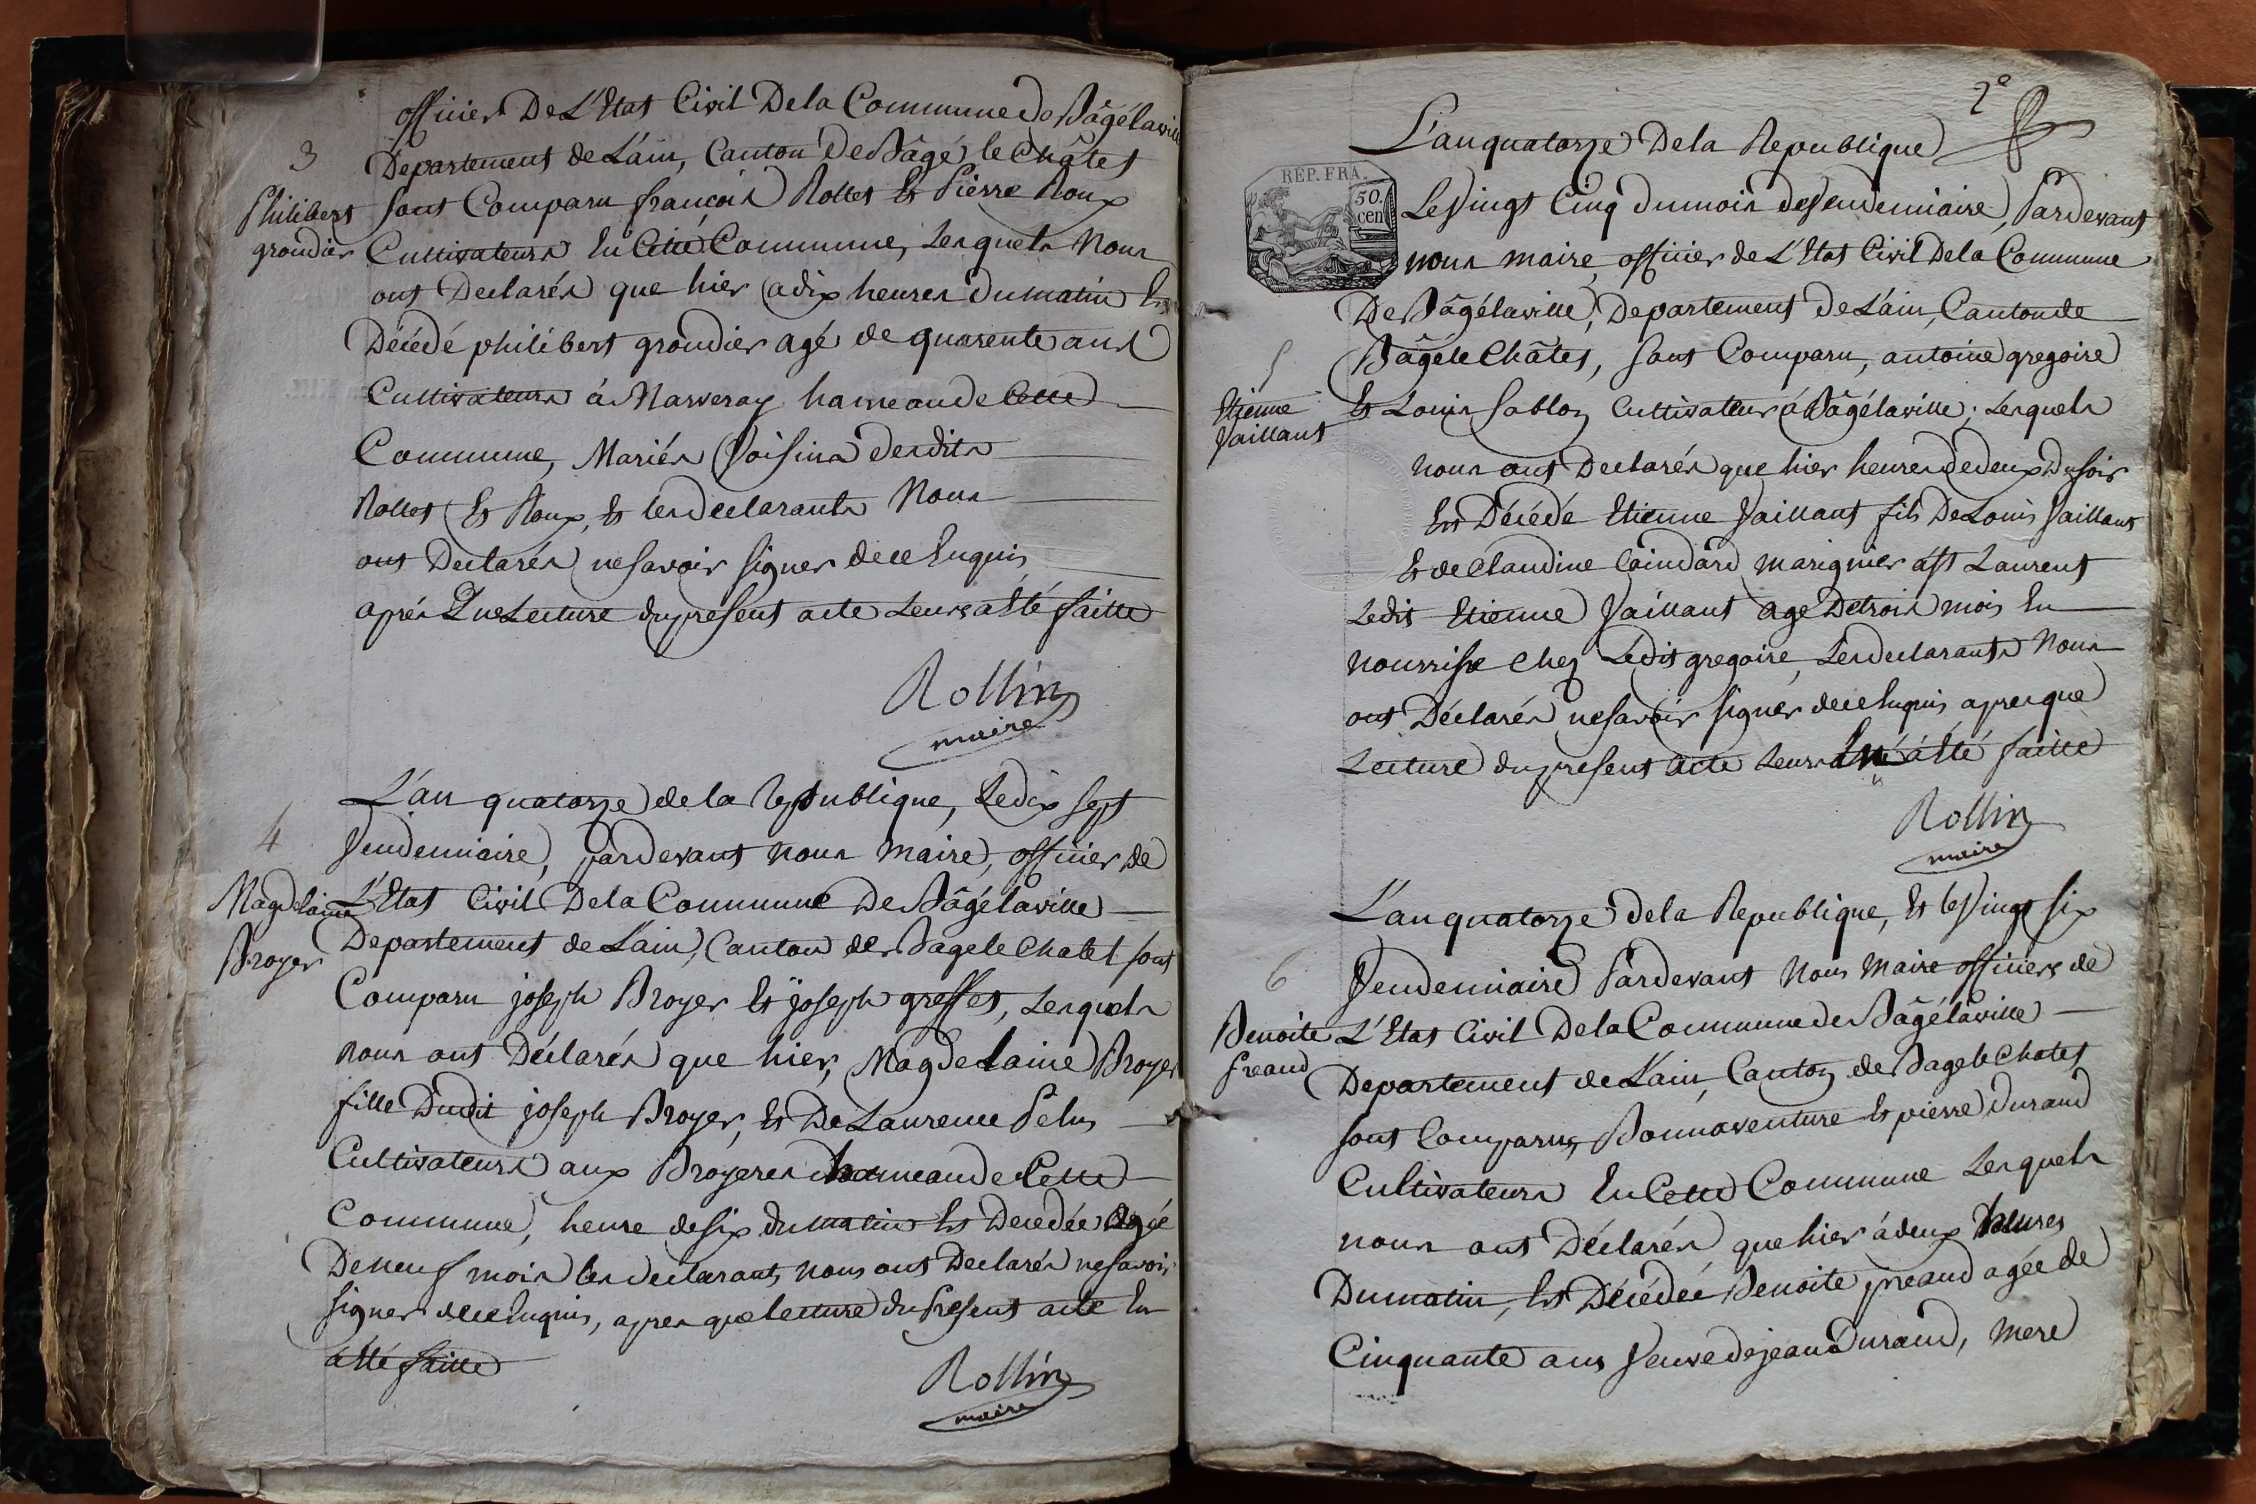 officier De L'Etat Civil De la Commune de Bâgélaville
3
Departement de L'ain, Canton De Bâgé le Châtel
Philibert
grondier
sont Comparu françois Rollet Et Pierre Roux
Cultivateurs En Cette Commune, Lesquels Nous
ont Declarés que hier a dix heures du matin Est
Décédé philibert grondier agé de quarente ans
Cultivateurs à Marveray hameau de Cette
Commune, Mariés Voisins desdits
Rollet Et Roux, Et les declarants Nous
ont Declarés ne Savoir Signer de ce Enquis
aprés Que Lecture du present acte Leurs a Eté faitte
Rollin
maire
4
Magdelaine
Broyer
L'an quatorze de la republique, Le dix Sept
Vendemiaire, pardevant nous Maire, officier de
L'Etat Civil De la Commune De Bâgélaville
Departement de L'ain, Canton de Bagé le Chatel sont
Comparu joseph Broyer Et joseph greffet, Lesquels
nous ont Déclarés que hier, Magdelaine Broyer
fille Dudit joseph Broyer, Et De Laurence Pelus
Cultivateurs aux Broyeres hameau de Cette
Commune, heure de six du matin Est Decedée agé
De neuf mois les declarants nous ont Declarés ne Savoir
Signer de ce Enquis, apres que lecture du Present acte En
a Eté faitte
Rollin
maire
2e
L'an quatorze De la Republique
REP. FRA.
50.
cen
Le Vingt Cinq du mois de Vendemiaire, Pardevant
nous maire officier de L'Etat Civil De la Commune
De Bâgélaville, Departement De L'ain, Canton de
Bâgé le Châtel, sont Comparu, antoine gregoire
5
Etienne
Vaillant
Et Louis Sablon Cultivateur á Bâgélaville, Lesquels
nous ont Declarés que hier heures de deux Du soir
Est Décédé Etienne Vaillant fils De Louis Vaillant
Et de Claudine Coindard marignier a St Laurent
Ledit Etienne Vaillant age De trois mois En
nourrisse Chez Ledit gregoire, Les declarants Nous
ont Déclarés ne Savoir Signer de ce Enquis apres que
Lecture du present acte Leurs a Eté faitte
Rollin
maire
L'an quatorze de la Republique, Et le Vingt six
6
Benoite
Preaud
Vendemiaire Pardevant Nous Maire officiers de
L'Etat Civil De la Commune de Bâgélaville
Departement de L'ain, Canton de Bagé le Chatel
sont Comparus, Bonnaventure Et pierre Durand
Cultivateurs En Cette Commune Lesquels
nous ont Déclarés que hier à deux heures
Du matin, Est Décédée Benoite preaud agée de
Cinquante ans Veuve de jean Durand, mere